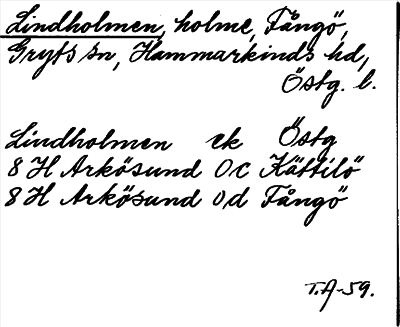 Lindholmen, holme, Fångö,
Gryts sn, Hammarkinds hd,
Östg. l.
Lindholmen ek Östg
8 H Arkösund 0 c Kättilö
8 H Arkösund 0 d Fångö
T.A-59.